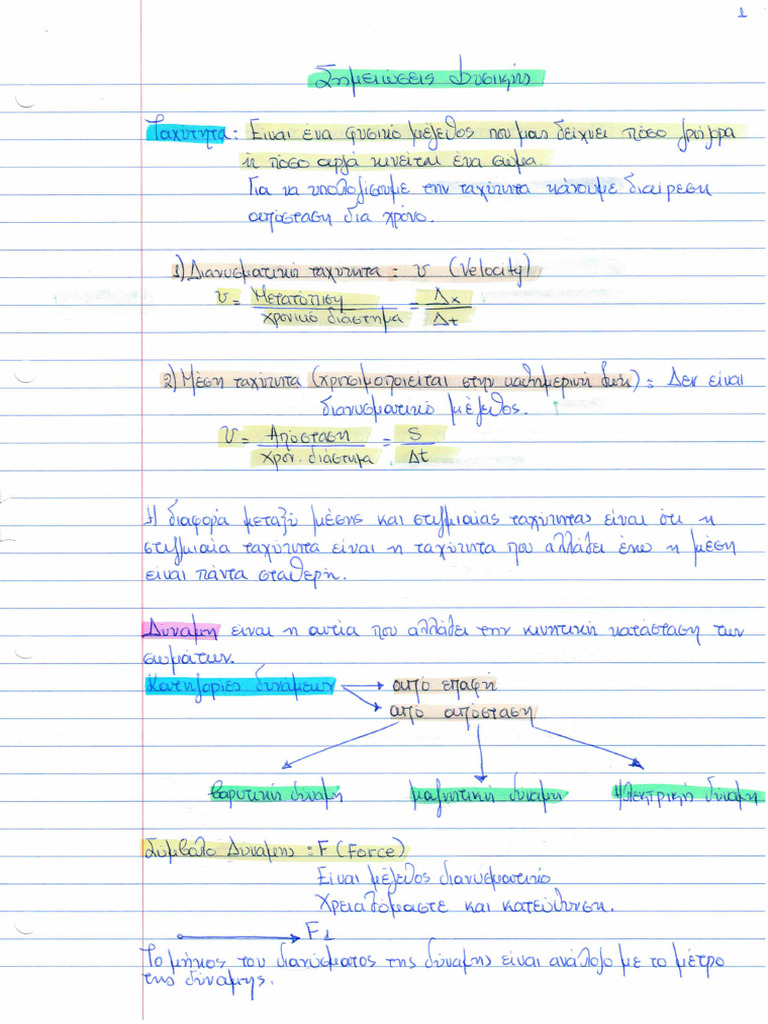 1
Σημειώσεις Φυσικής
Ταχύτητα: Είναι ένα φυσικό μέγεθος που μας δείχνει πόσο γρήγορα
ή πόσο αργά κινείται ένα σώμα.
Για να υπολογίσουμε την ταχύτητα κάνουμε διαίρεση
απόσταση δια χρόνο.
1) Διανυσματική ταχύτητα: υ (Velocity)
υ = Μετατόπιση / χρονικό διάστημα = Δx / Δt
2) Μέση ταχύτητα (χρησιμοποιείται στην καθημερινή ζωή): Δεν είναι
διανυσματικό μέγεθος.
υ = Απόσταση / χρον. διάστημα = S / Δt
Η διαφορά μεταξύ μέσης και στιγμιαίας ταχύτητας είναι ότι η
στιγμιαία ταχύτητα είναι η ταχύτητα που αλλάζει ενω η μέση
είναι πάντα σταθερή.
Δύναμη είναι η αιτία που αλλάζει την κινητική κατάσταση των
σωμάτων.
Κατηγορίες δυνάμεων → από επαφή
→ από απόσταση
βαρυτική δύναμη μαγνητική δύναμη ηλεκτρική δύναμη
Σύμβολο Δύναμης: F (Force)
Είναι μέγεθος διανυσματικό
Χρειαζόμαστε και κατεύθυνση.
F1
Το μήκος του διανύσματος της δύναμης είναι ανάλογο με το μέτρο
της δύναμης.